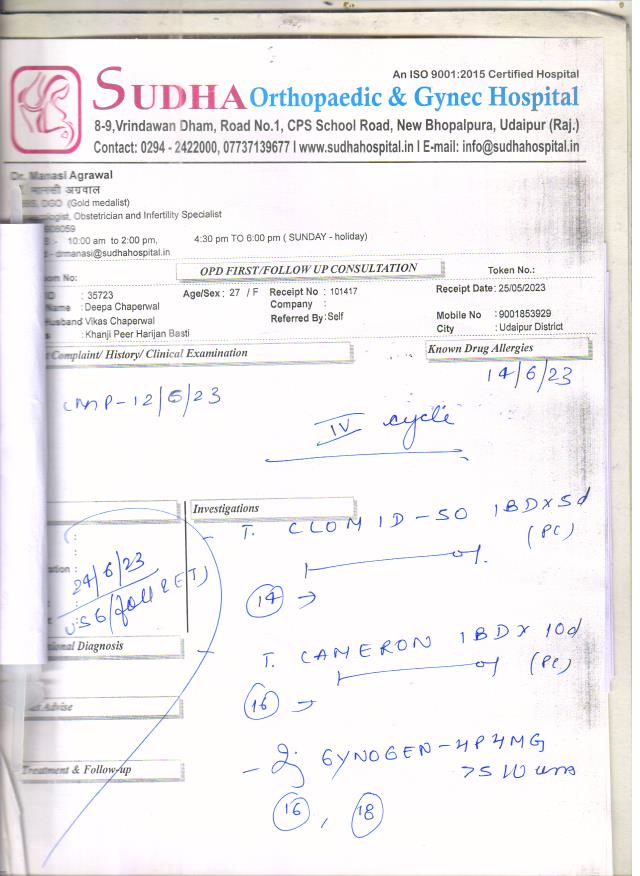 An ISO 9001:2015 Certified Hospital
SUDHA Orthopaedic & Gynec Hospital
8-9,Vrindawan Dham, Road No.1, CPS School Road, New Bhopalpura, Udaipur (Raj.)
Contact: 0294 - 2422000, 07737139677 I www.sudhahospital.in I E-mail: info@sudhahospital.in
Dr. Manasi Agrawal
मानसी अग्रवाल
DGO (Gold medalist)
Obstetrician and Infertility Specialist
10:00 am to 2:00 pm, 4:30 pm TO 6:00 pm ( SUNDAY - holiday)
drmanasi@sudhahospital.in
OPD FIRST/FOLLOW UP CONSULTATION
Token No.:
No:
: 35723 Age/Sex : 27 / F Receipt No : 101417 Receipt Date: 25/05/2023
Name : Deepa Chaperwal Company :
usband Vikas Chaperwal Referred By: Self Mobile No : 9001853929
: Khanji Peer Harijan Basti City : Udaipur District
Complaint/ History/ Clinical Examination
Known Drug Allergies
14/6/23
LMP-12/6/23
IV cycle
Investigations
T. CLOMID-50 1BD x 5d
(PC)
14 →
24/6/23
USG (foll & ET)
ional Diagnosis
T. CAMERON 1BD x 10d
(PC)
16 →
Advise
Treatment & Follow-up
Inj GYNOGEN-HP
16, 18